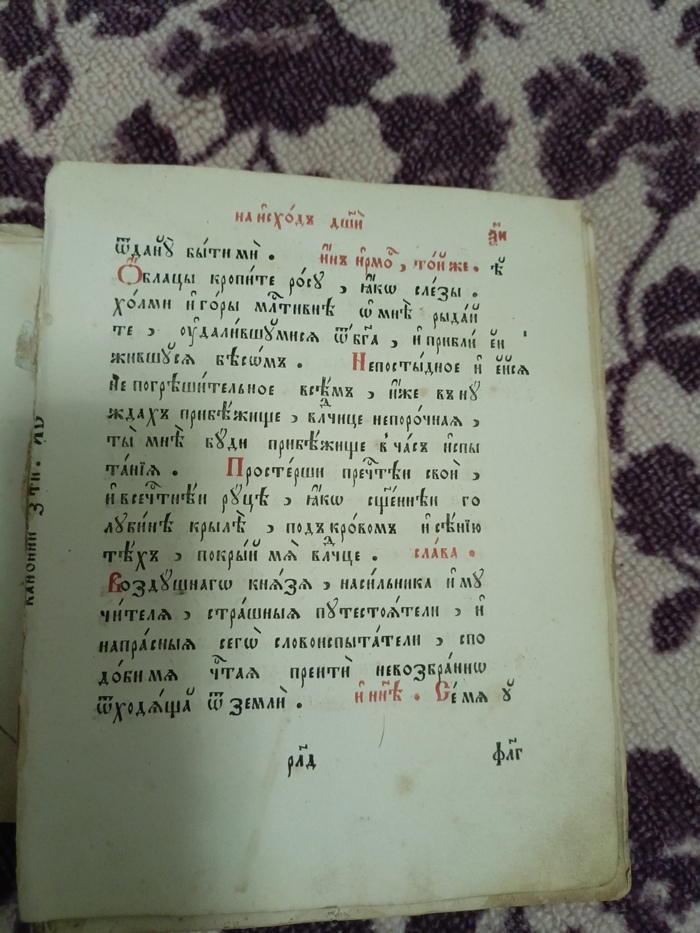 на и҆схо́дъ дш҃и
а҃и
ѿдану̀ бы́ти мѝ . и҆́нъ и҆рмо́с , то́й же . є҃
Ѻ҆́блацы кропи́те ро́су , ꙗ҆́кѡ сле́зы .
хо́лми и҆ го́ры мл҃тивнѣ ѡ҆ мнѣ̀ рыда́й
те , ᲂу҆дали́вшꙋмисѧ ѿ бг҃а , и҆ прибли́
жившꙋсѧ бѣсѡ́мъ . Непосты́дное и҆
не погрѣши́тельное всѣ́мъ , и҆́же въ нꙋ
ждахъ прибѣ́жище , влⷣчице непоро́чнаѧ ,
ты̀ мнѣ̀ бꙋ́ди прибѣ́жище в̾ ча́съ и҆спы
та́нїѧ . Просте́рши преч҃тѣи свои̑ ,
и҆ всеч҃тнѣ́и рꙋ́цѣ , ꙗ҆́кѡ сщ҃е́ннѣи го
лꙋби́нѣ крылѣ̀ , под̾ кро́вомъ и҆ сѣ́нїю
тѣ́хъ , покры́й мѧ̀ влⷣчце . сла́ва .
Воздꙋ́шнагѡ кнѧ́зѧ , наси́льника и҆ мꙋ
чи́телѧ , стра́шныѧ пꙋтестоѧ́тели , и҆
напра́сныѧ сегѡ̀ словоиспыта́тели , спо
до́би мѧ чт҃аѧ преитѝ невозбра́ннѡ
ѿходѧ́ща ѿ землѝ . и҆ нн҃ѣ . Се́ мѧ ᲂу҆
рл҃д
фл҃г